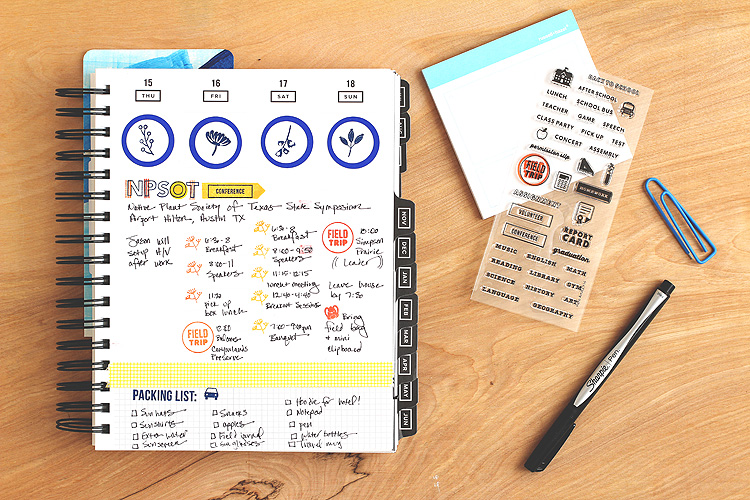 15 16 17 18
THU FRI SAT SUN
NPSOT CONFERENCE
Native Plant Society of Texas State Symposium
Airport Hilton, Austin TX
Jason will
setup H/V
after work
6:30-8
Breakfast
Speakers
11:30
pick up
box lunch
FIELD
TRIP
Preserve
6:30-8
Breakfast
Speakers
11:15-12:15
12:40-4:40
Breakout Sessions
Banquet
FIELD
TRIP
Simpson
Prairie
Leave house
by 7:30
Bring
field bag
+ mini
clipboard
PACKING LIST:
Sun hats
Extra water
Sunscreen
Snacks
apples
Field journal
Sunglasses
Hoodie for hotel!
Notepad
pen
Water bottles
Travel mug
NOV
DEC
JAN
FEB
MAR
APR
MAY
JUN
BACK TO SCHOOL
AFTER SCHOOL
LUNCH
SCHOOL BUS
TEACHER
GAME
SPEECH
CLASS PARTY
PICK UP
TEST
CONCERT
ASSEMBLY
permission slip
FIELD
TRIP
HOMEWORK
ASSIGNMENT
VOLUNTEER
REPORT
CARD
CONFERENCE
graduation
MUSIC
ENGLISH
MATH
READING
LIBRARY
GYM
SCIENCE
HISTORY
ART
LANGUAGE
GEOGRAPHY
Sharpie Pen